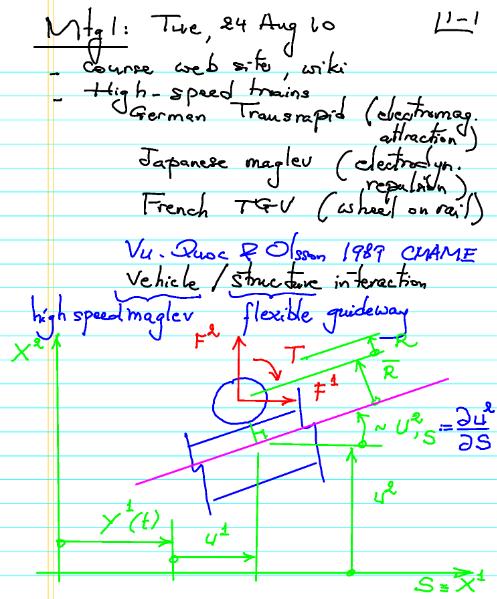 Mtg 1: Tue, 24 Aug 10
1-1
- course web site, wiki
- High-speed trains
German Transrapid (electromag.
attraction)
Japanese maglev (electrodyn.
repulsion)
French TGV (wheel on rail)
Vu-Quoc & Olsson 1989 CMAME
vehicle / structure interaction
high speed maglev flexible guideway
X² F² T R
R̄
F¹
~ u²,S := ∂u²/∂S
Y¹(t) u¹ u²
S ≡ X¹